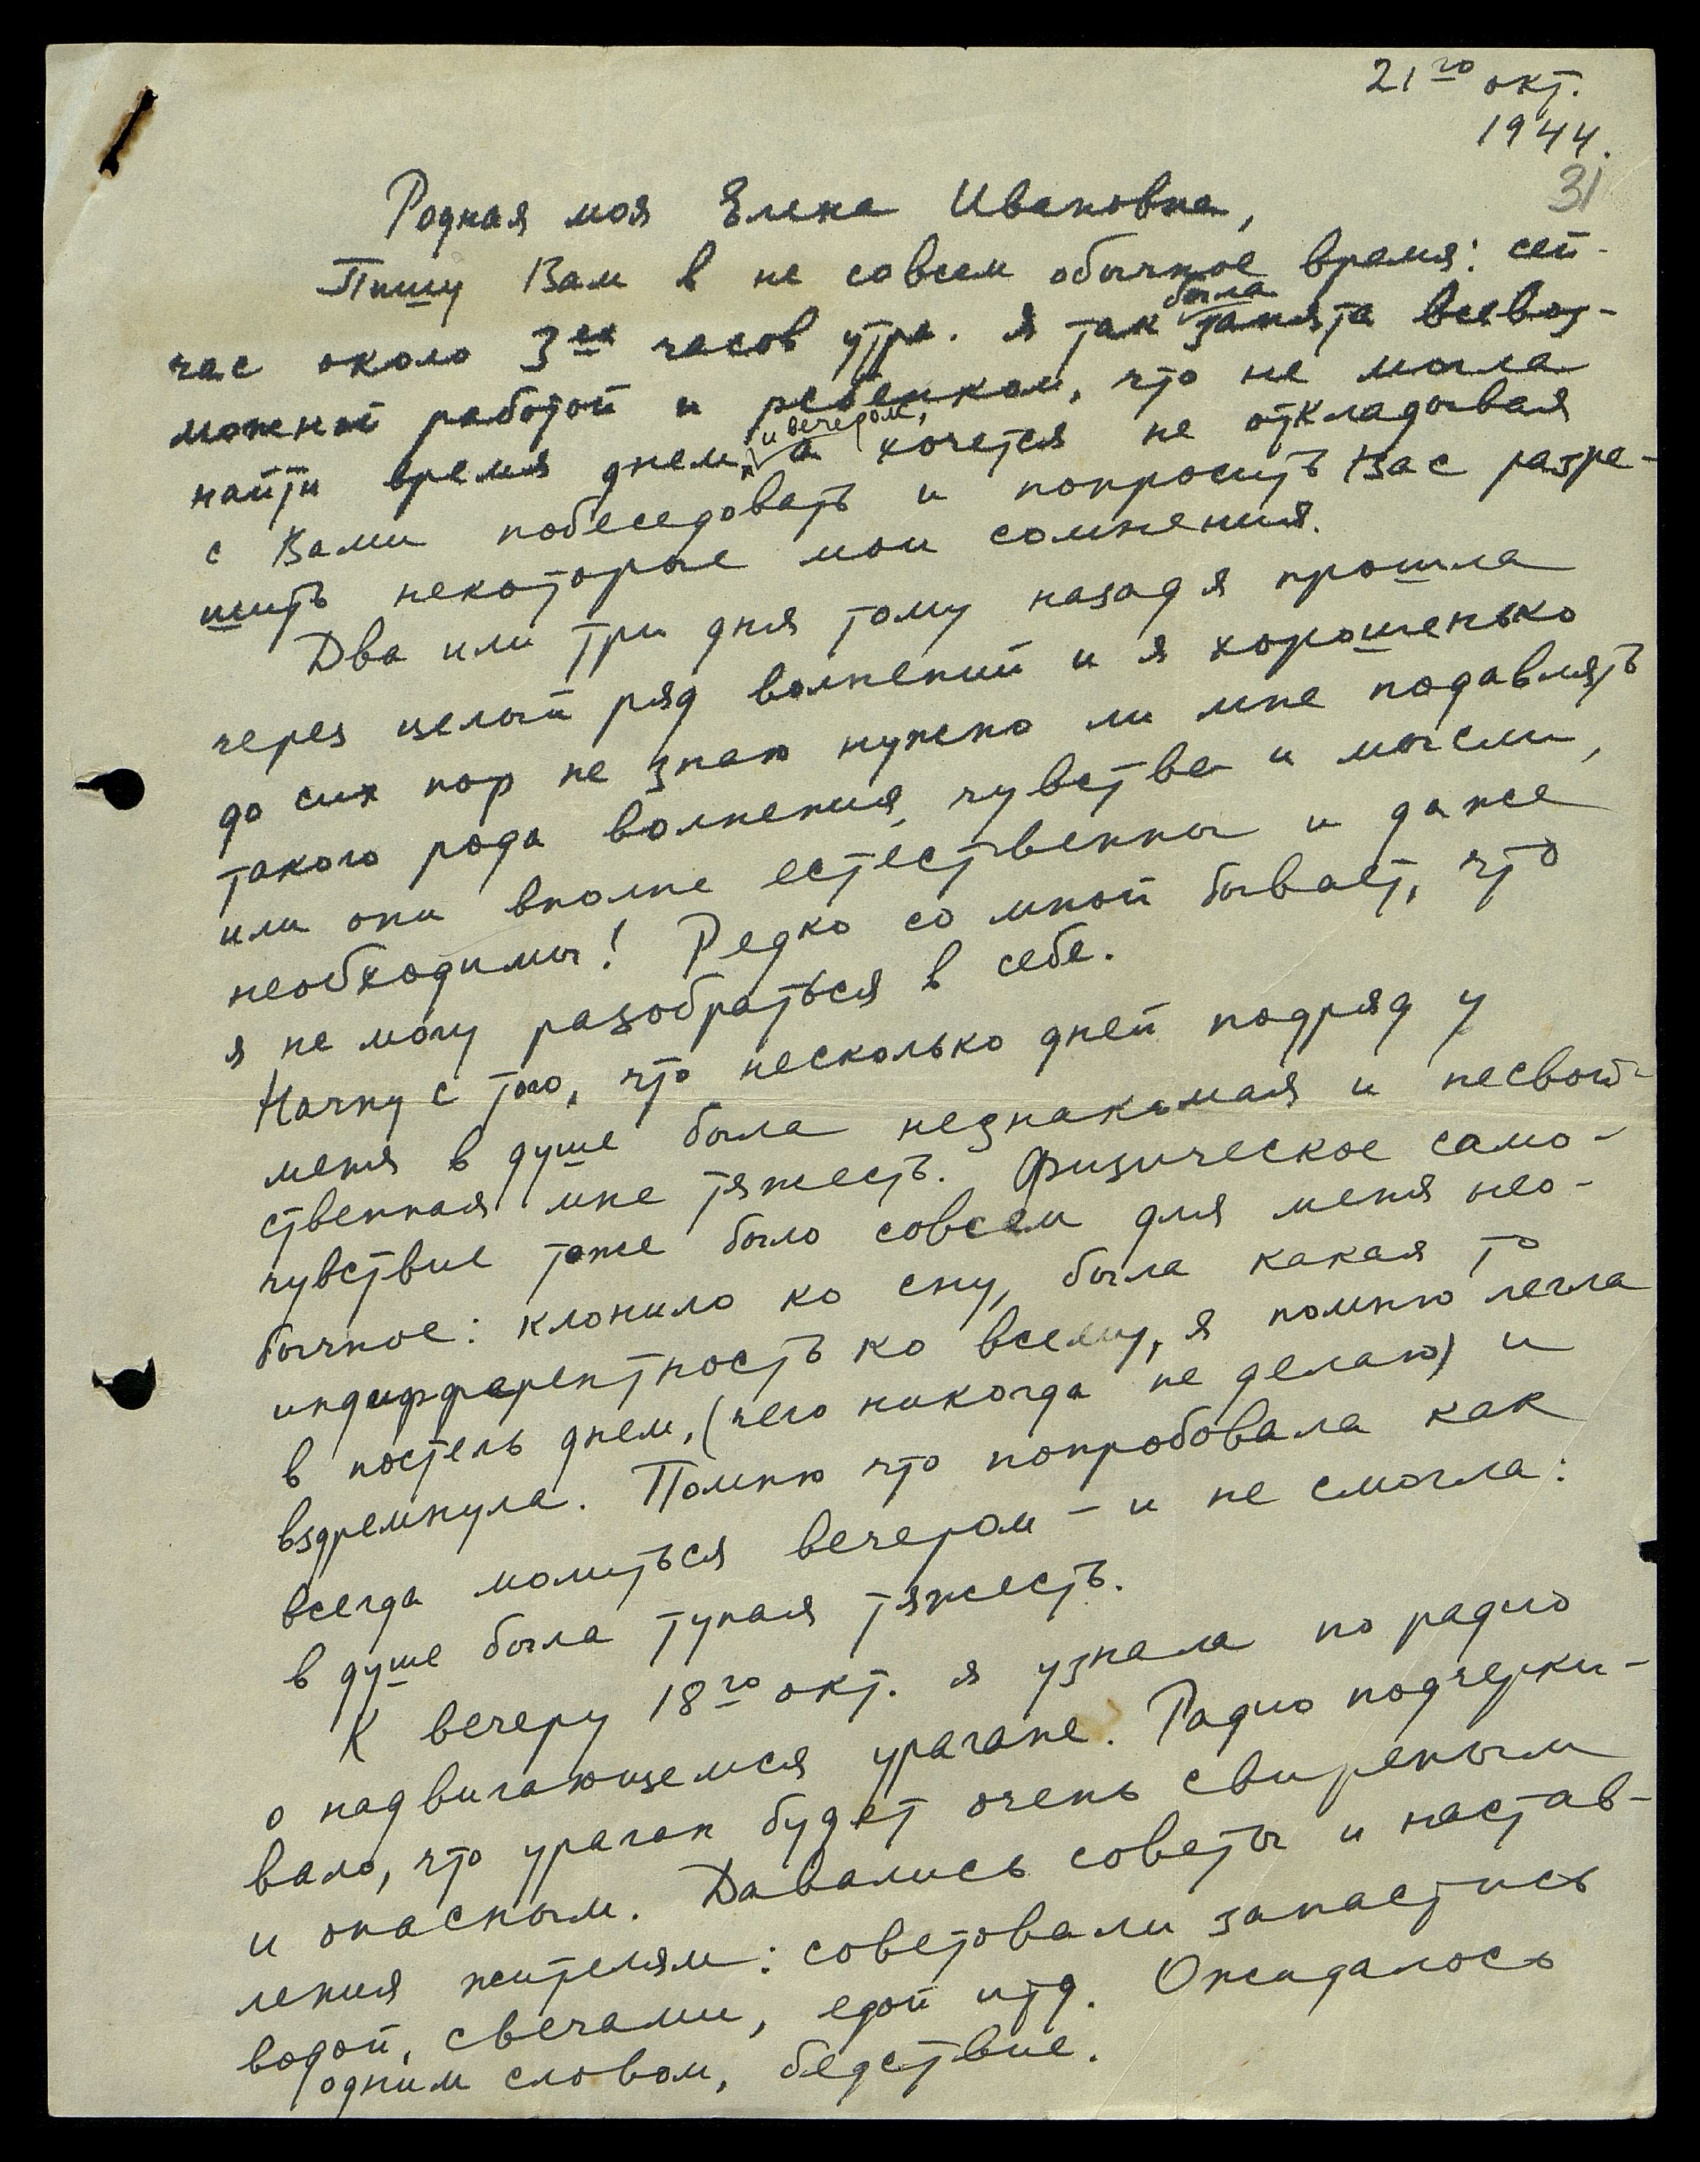 21го окт.
1944.
31
Родная моя Елена Ивановна,
Пишу Вам в не совсем обычное время: сей-
час около 3ех часов утра. Я так была занята всевоз-
можной работой и ребенком, что не могла
найти время днем и вечером, а хочется не откладывая
с Вами побеседовать и попросить Вас разре-
шить некоторые мои сомнения.
Два или три дня тому назад я прошла
через целый ряд волнений и я хорошенько
до сих пор не знаю нужно ли мне подавлять
такого рода волнения, чувства и мысли,
или они вполне естественны и даже
необходимы! Редко со мной бывает, что
я не могу разобраться в себе.
Начну с того, что несколько дней подряд у
меня в душе была незнакомая и несвой-
ственная мне тяжесть. Физическое само-
чувствие тоже было совсем для меня нео-
бычное: клонило ко сну, была какая то
индифферентность ко всему, я помню легла
в постель днем, (чего никогда не делаю) и
вздремнула. Помню что попробовала как
всегда молиться вечером – и не смогла:
в душе была тупая тяжесть.
К вечеру 18го окт. я узнала по радио
о надвигающемся урагане. Радио подчерки-
вало, что ураган будет очень свирепым
и опасным. Давались советы и настав-
ления жителям: советовали запастись
водой, свечами, едой итд. Ожидалось
одним словом, бедствие.